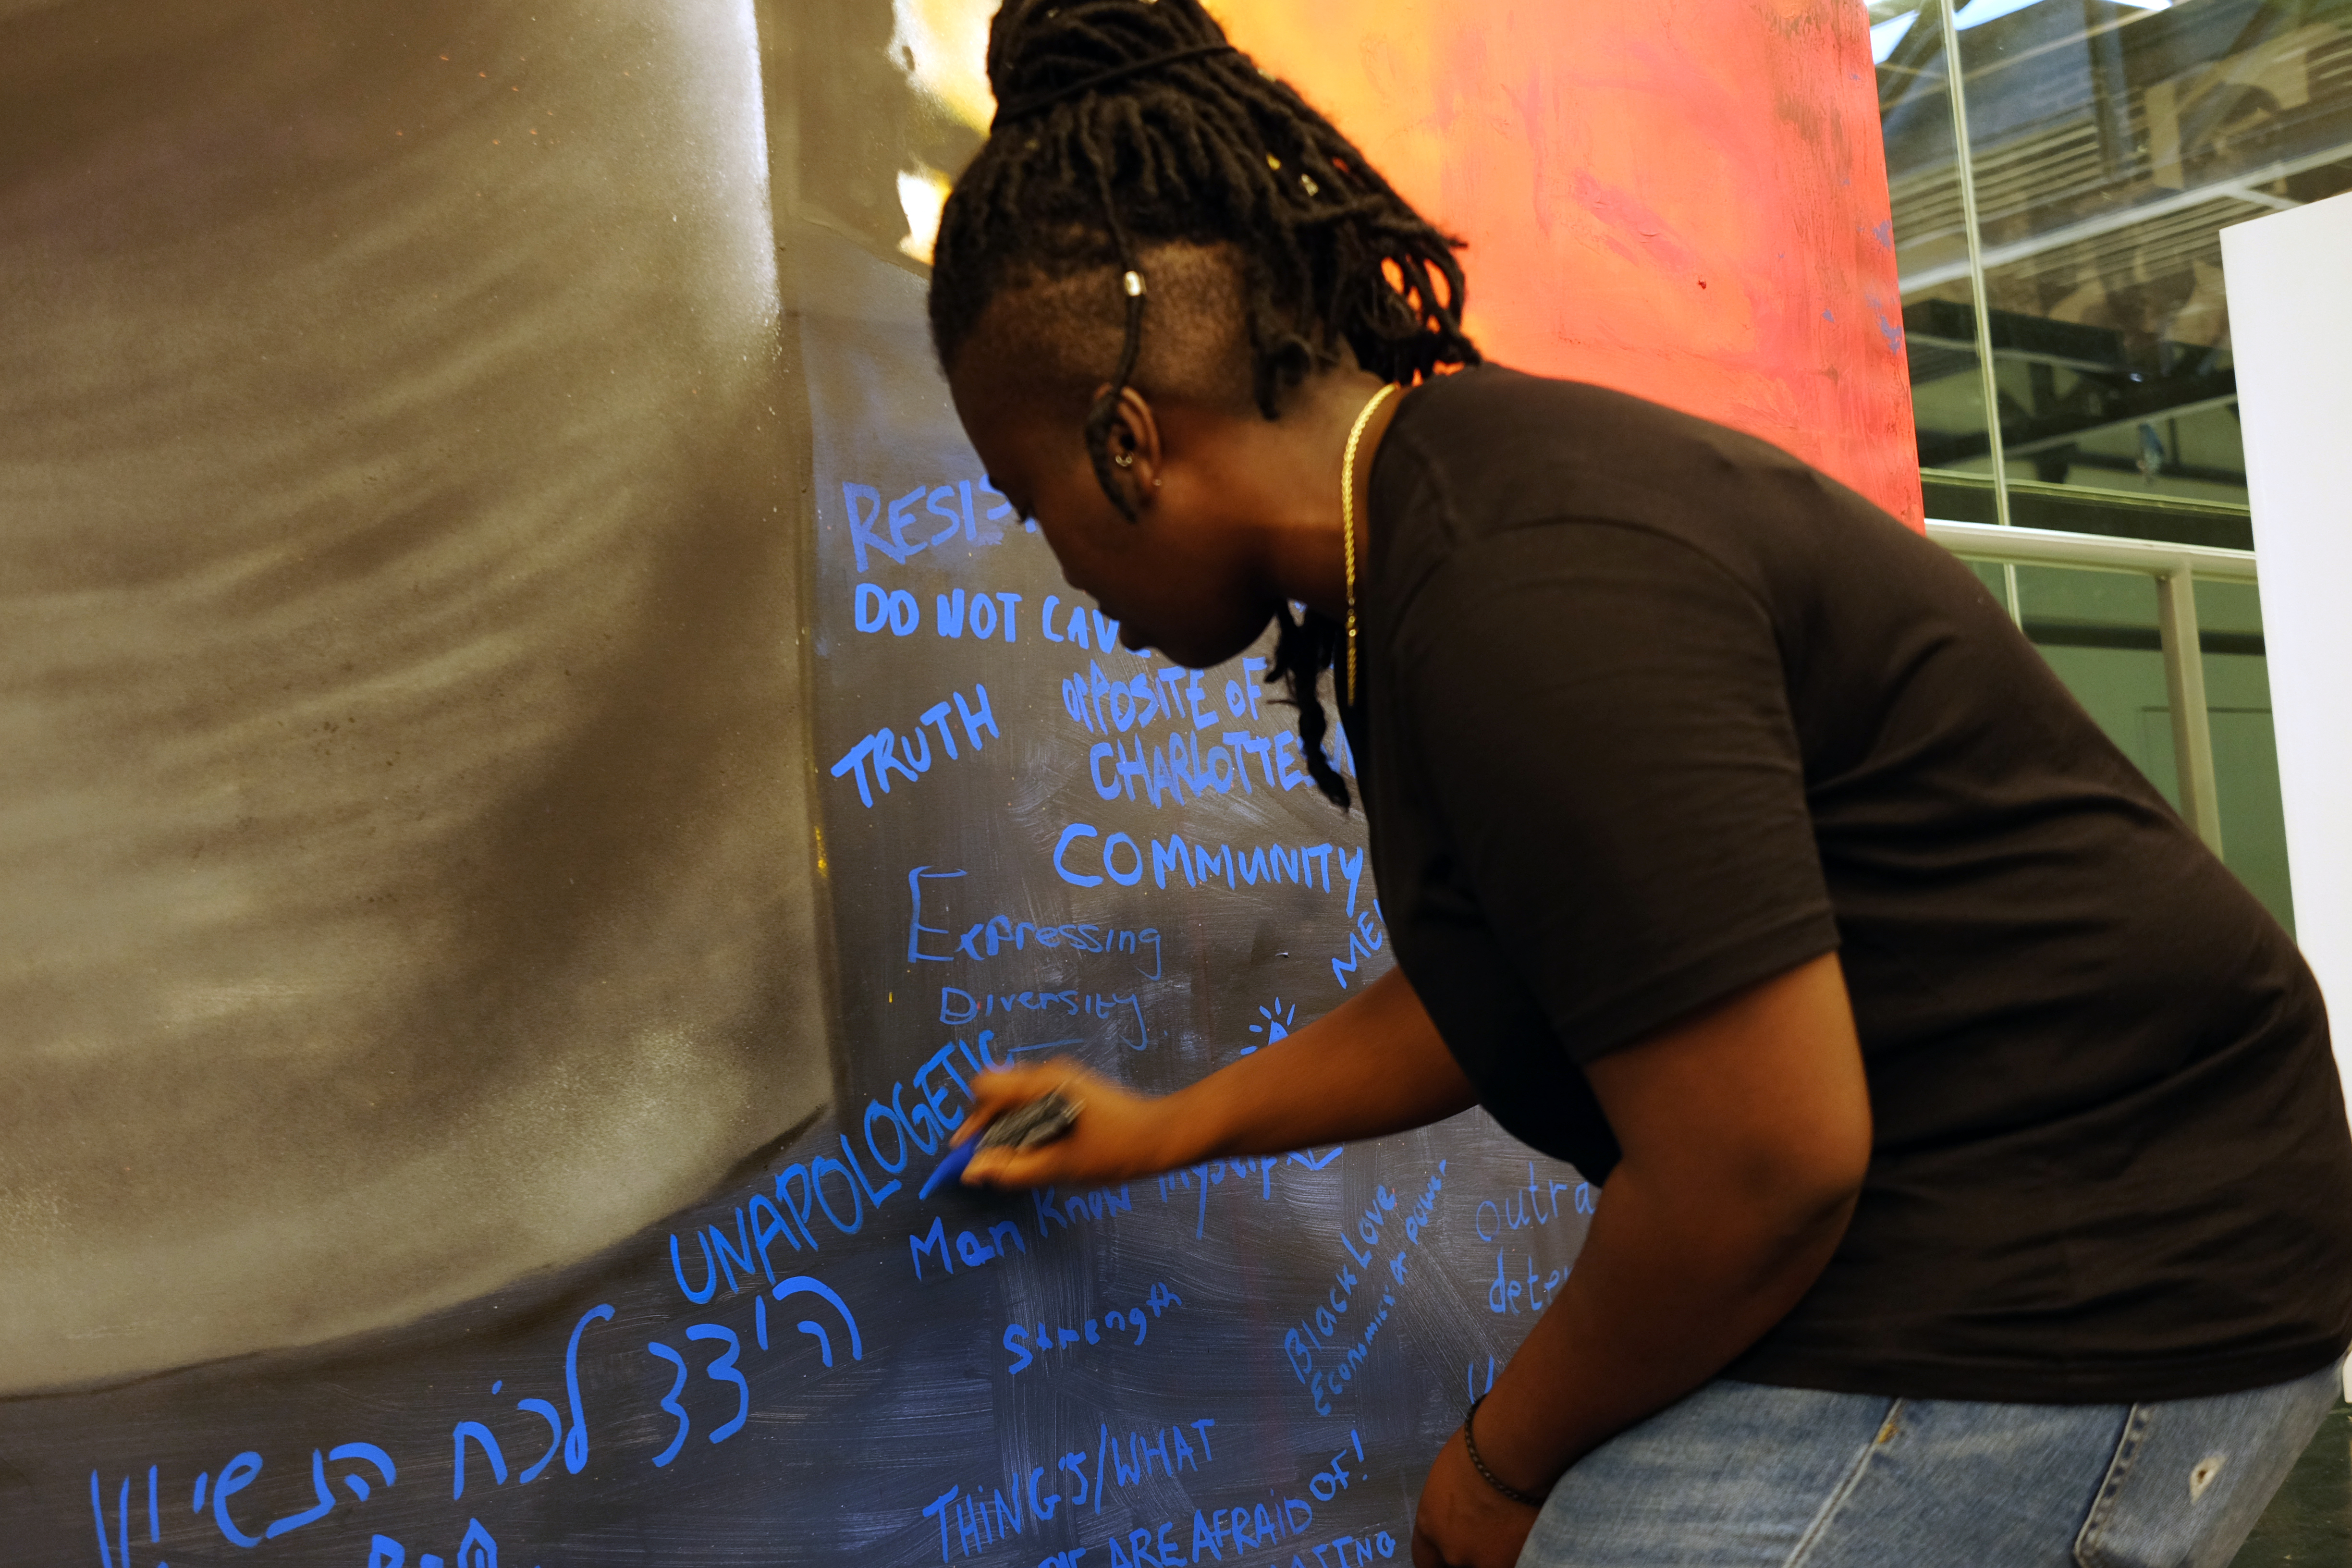 RESIS
DO NOT CAV
TRUTH
OPPOSITE OF
CHARLOTTES
COMMUNITY
Expressing
Diversity
ME
UNAPOLOGETIC
Man Know myself
outra
dete
Black Love
Economics & power
Strength
הי לכח הנשי
THiNGS/WHAT
ARE AFRAID OF!